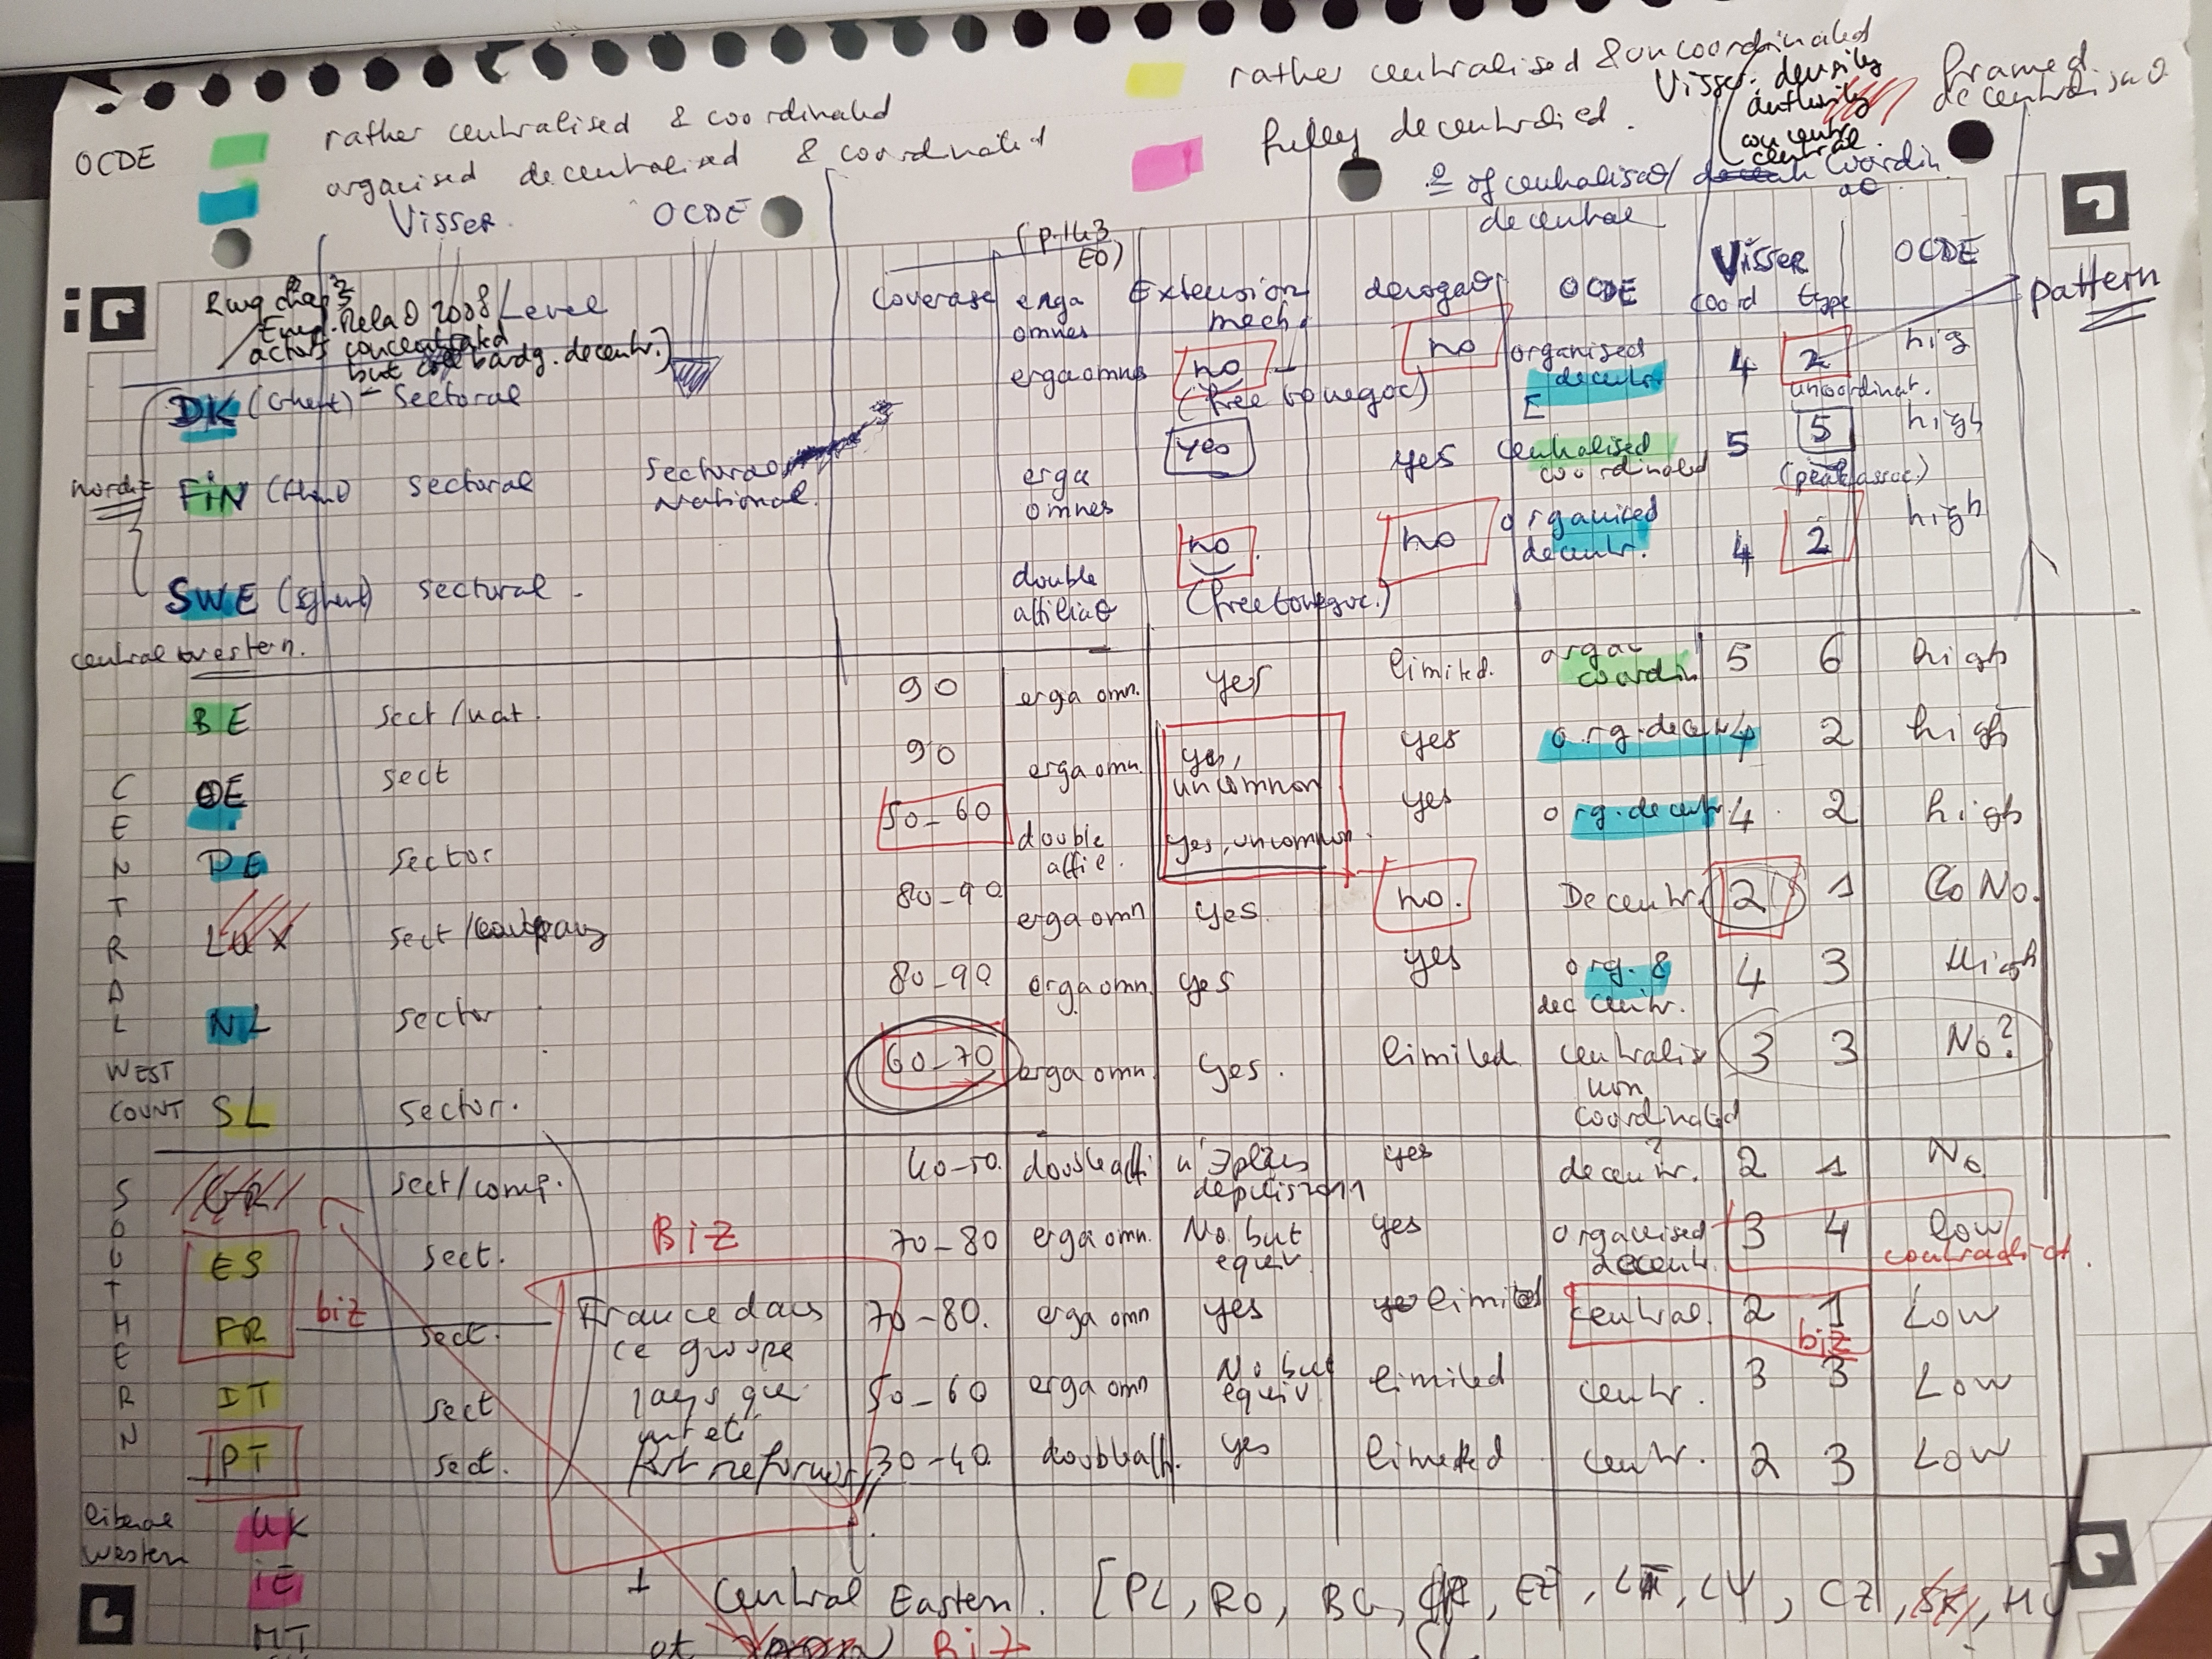 rather centralised & uncoordinated
OCDE rather centralised & coordinated
organised decentralised & coordinated
fully decentralied.
Visser: density
authority
concentr
central.
framed
decentralisaθ
Visser. OCDE
(p.143
EO)
° of centralisaθ/ Coordin
aθ
decentral
chap 3
Level
actors concentrated
but bardg. decentr.)
coverage erga omnes Extension mech. derogaθ OCDE Visser coord type OCDE pattern
DK (Ghent) - Sectoral erga omnes no (free to negoc) no organised decentr 4 2 uncoordinat. hig
nord= FIN sectoral Sectoral National. erga omnes yes yes centralised coordinated 5 5 (peak assoc.) high
SWE sectoral - double affiliaθ no. (free to negoc.) no organised decentr. 4 2 high
central western.
CENTRAL WEST COUNT
BE sect/nat. 90 erga omn. yes limited. coordin 5 6 high
OE sect 90 erga omn. yes, uncommon yes org.decentr 4 2 high
DE sector 50-60 double affil. yes, uncommon. yes org.decentr 4. 2 high
LUX sect/company 80-90 erga omn yes. no. Decentr. 2 1 Co No.
NL sector 80-90 erga omn. yes yes org. & decentr. 4 3 High
SL sector. 60-70 erga omn. yes. limited centralis non coordinated 3 3 No?
SOUTHERN
GR sect/comp. 40-50. double affi. n'∃ plus depuis 2011 yes decentr. ? 2 1 No
ES sect. 70-80 erga omn. No but equiv. yes organised decentr. 3 4 low
contradict.
BiZ
FR biz sect. 70-80. erga omn yes limited central. 2 1 biz Low
France dans
ce groupe
pays qui
ont été
fort reformés
IT sect 50-60 erga omn No but equiv limited centr. 3 3 Low
PT sect. 30-40. double aff. yes limited centr. 2 3 Low
liberal
western
UK
iE
MT
+ Central Eastern. [PL, RO, BG, , LV, CZ, SK, HU
et BiZ